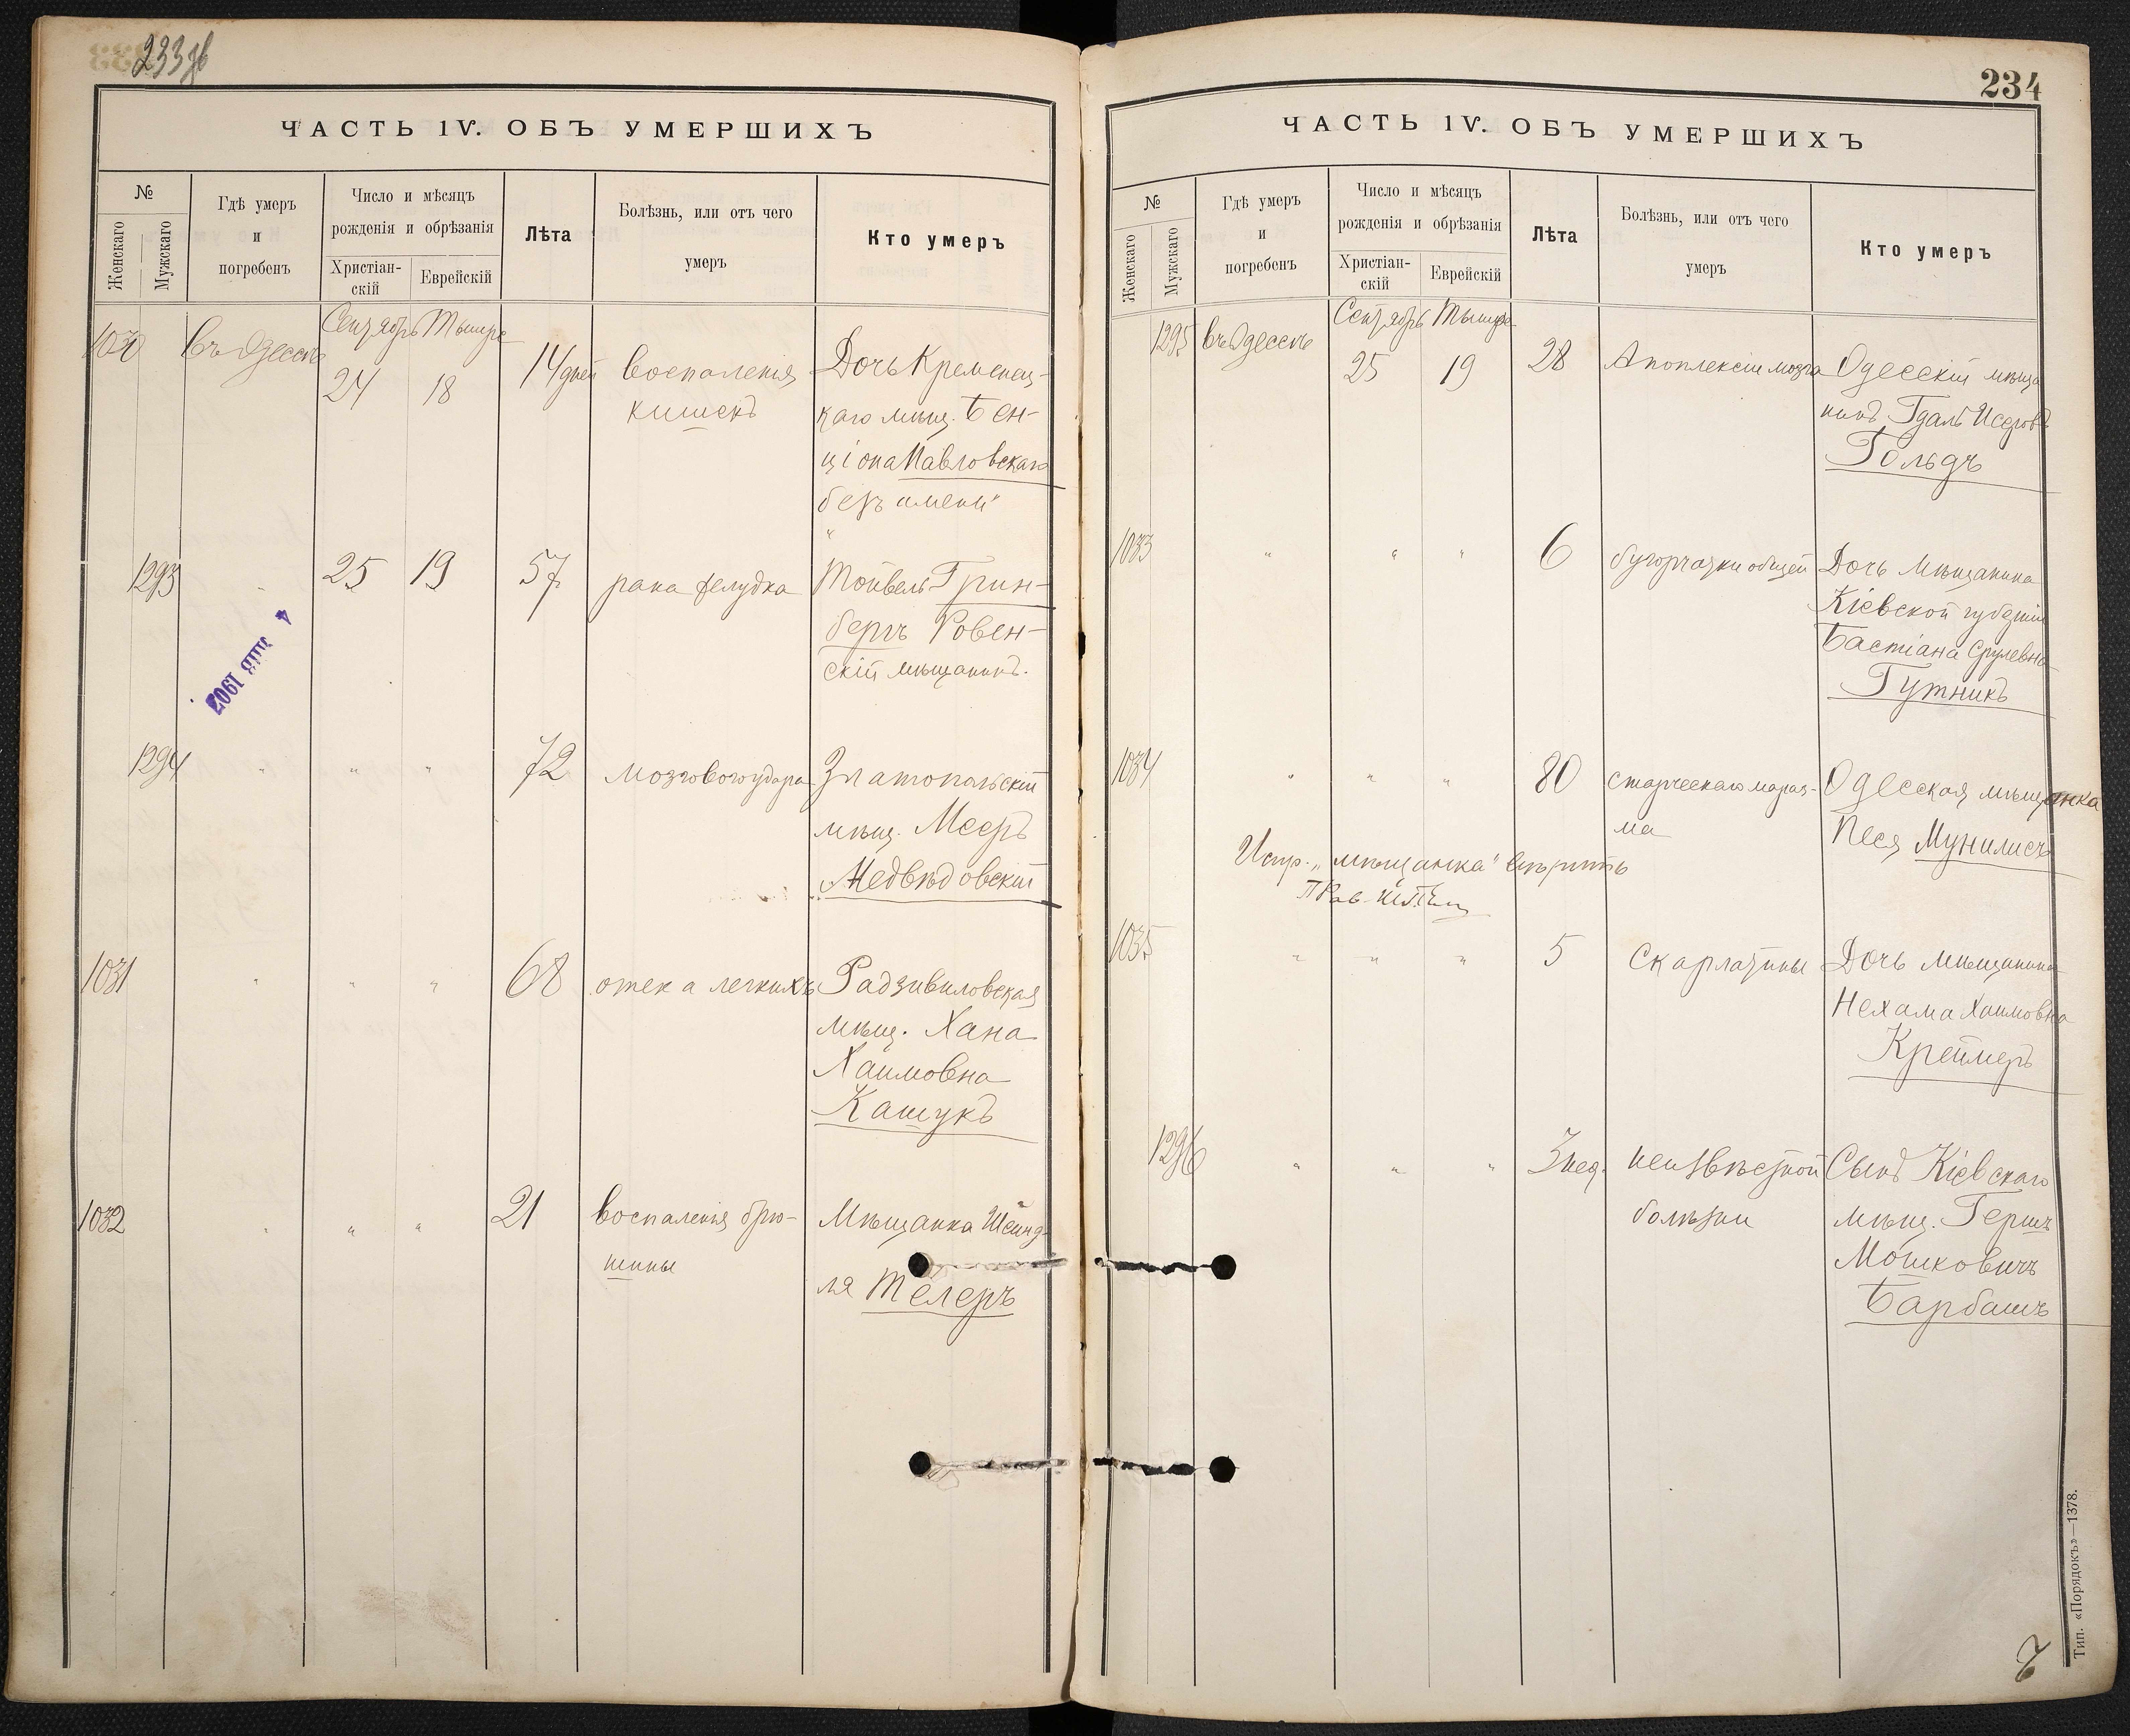 233 об
ЧАСТЬ 1V. ОБЪ УМЕРШИХЪ
№
Женскаго
Мужскаго
Гдѣ умеръ
и
погребенъ
Число и мѣсяцъ
рожденія и обрѣзанія
Христіан-
скій
Еврейскій
Лѣта
Болѣзнь, или отъ чего
умеръ
Кто умеръ
Сентябрь Тышре
1030 Въ Одессѣ 24 18 14 дней воспаленія Дочь Кременец-
кишекъ каго мѣщ. Бен-
ціона Павловскаго
безъ имени"
"
1293 25 19 57 рака желудка Тойвель Грин-
бергъ Ровен-
скій мѣщанинъ.
4 1907
1294 " " " 72 мозговаго удара Златопольскій
мѣщ. Мееръ
Медвѣдовскій
1031 " " " 68 отека легкихъ Радзивиловская
мѣщ. Хана
Хаимовна
Кашукъ
1032 " " " 21 воспаленія брю- Мѣщанка Шейнд-
шины ля Телеръ
234
ЧАСТЬ 1V. ОБЪ УМЕРШИХЪ
№
Женскаго
Мужскаго
Гдѣ умеръ
и
погребенъ
Число и мѣсяцъ
рожденія и обрѣзанія
Христіан-
скій
Еврейскій
Лѣта
Болѣзнь, или отъ чего
умеръ
Кто умеръ
Сентябрь Тышре
1295 въ Одессѣ 25 19 28 Апоплексіи мозга Одесскій мѣща
нинъ Гдаль Исеровъ
Гольдъ
1033 " " " 6 бугорчатки общей Дочь мѣщанина
Кіевской губерніи
Бастіана Срулевна
Гутникъ
1034 " " " 80 старческаго мараз- Одесская мѣщанка
ма Песя Мунилисъ
Испр. „мѣщанка" вѣрить
1035 " " " 5 Скарлатины Дочь мѣщанина
Нехама Хаимовна
Креймеръ
1296 " " " 3 нед. неизвѣстной Сынъ Кіевскаго
болѣзни мѣщ. Гершъ
Мошковичъ
Барбашъ
Тип. «Порядокъ»—1378.